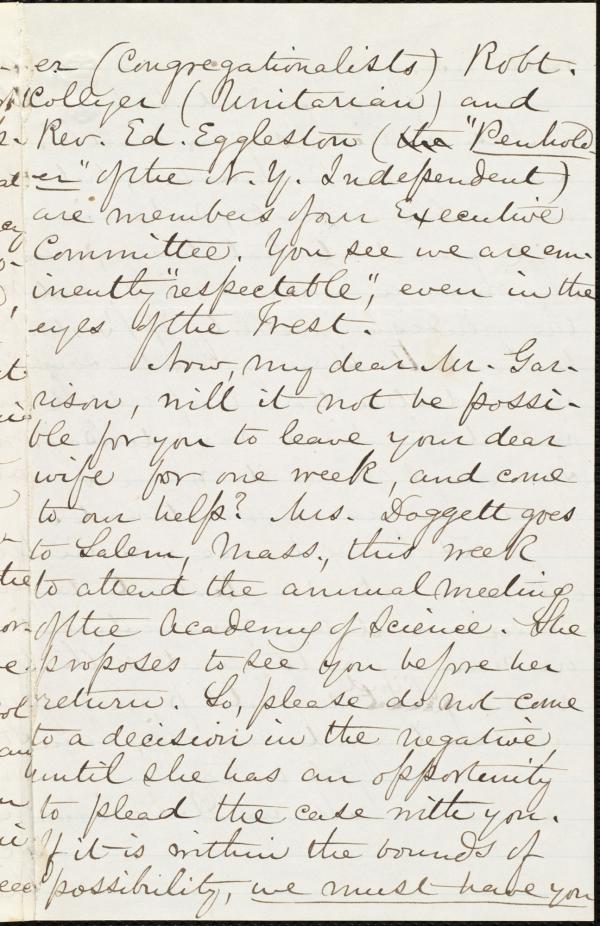 er (Congregationalists) Robt.
Collyer (Unitarian) and
Rev. Ed. Eggleston (the "Penhold-
er" of the N. Y. Independent)
are members of our Executive
Committee. You see we are em-
inently "respectable", even in the
eyes of the West.
Now, my dear Mr. Gar-
rison, will it not be possi-
ble for you to leave your dear
wife for one week, and come
to our help? Mrs. Doggett goes
to Salem, Mass., this week
to attend the annual meeting
of the Academy of Science. She
proposes to see you before her
return. So, please do not come
to a decision in the negative,
until she has an opportunity
to plead the case with you.
If it is within the bounds of
possibility, we must have you